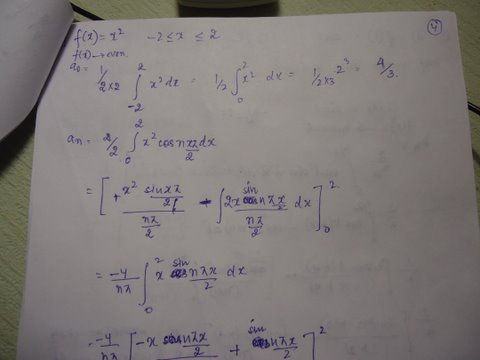 4
f(x) = x² -2 ≤ x ≤ 2
f(x) → even.
a0 = 1/2×2 ∫_{-2}^{2} x² dx = 1/2 ∫_0^2 x² dx = 1/2×3 2³ = 4/3.
an = 2/2 ∫_0^2 x² cos nπx/2 dx
= [ + x² sin xπ/2 / nπ/2 - ∫ 2x sin nπx/2 / nπ/2 dx ]_0^2
= -4/nπ ∫_0^2 x sin nπx/2 dx
= -4/nπ [ -x cos nπx/2 + sin nπx/2 ]^2